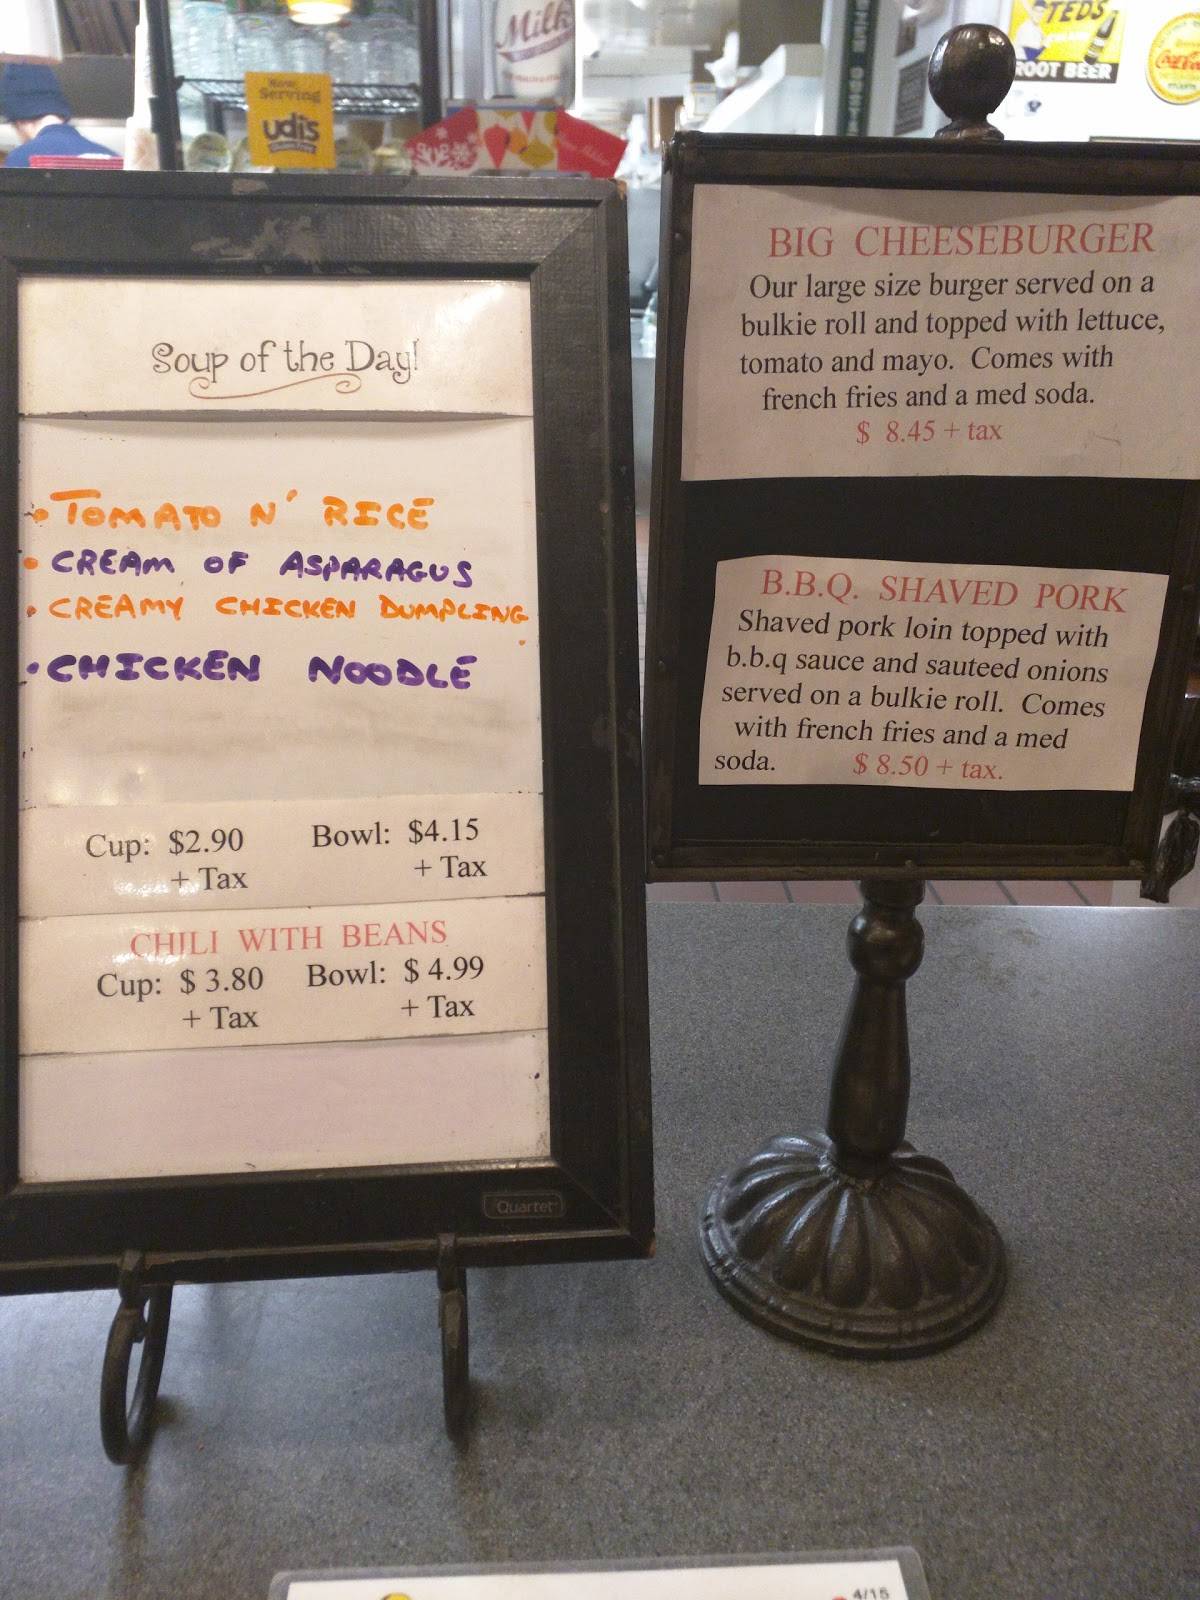 Milk
TEDS
ROOT BEER
Now
Serving
udi's
Soup of the Day!
• TOMATO N' RICE
• CREAM OF ASPARAGUS
• CREAMY CHICKEN DUMPLING
• CHICKEN NOODLE
Cup: $2.90 Bowl: $4.15
+ Tax + Tax
CHILI WITH BEANS
Cup: $ 3.80 Bowl: $ 4.99
+ Tax + Tax
Quartet
BIG CHEESEBURGER
Our large size burger served on a
bulkie roll and topped with lettuce,
tomato and mayo. Comes with
french fries and a med soda.
$ 8.45 + tax
B.B.Q. SHAVED PORK
Shaved pork loin topped with
b.b.q sauce and sauteed onions
served on a bulkie roll. Comes
with french fries and a med
soda. $ 8.50 + tax.
4/15